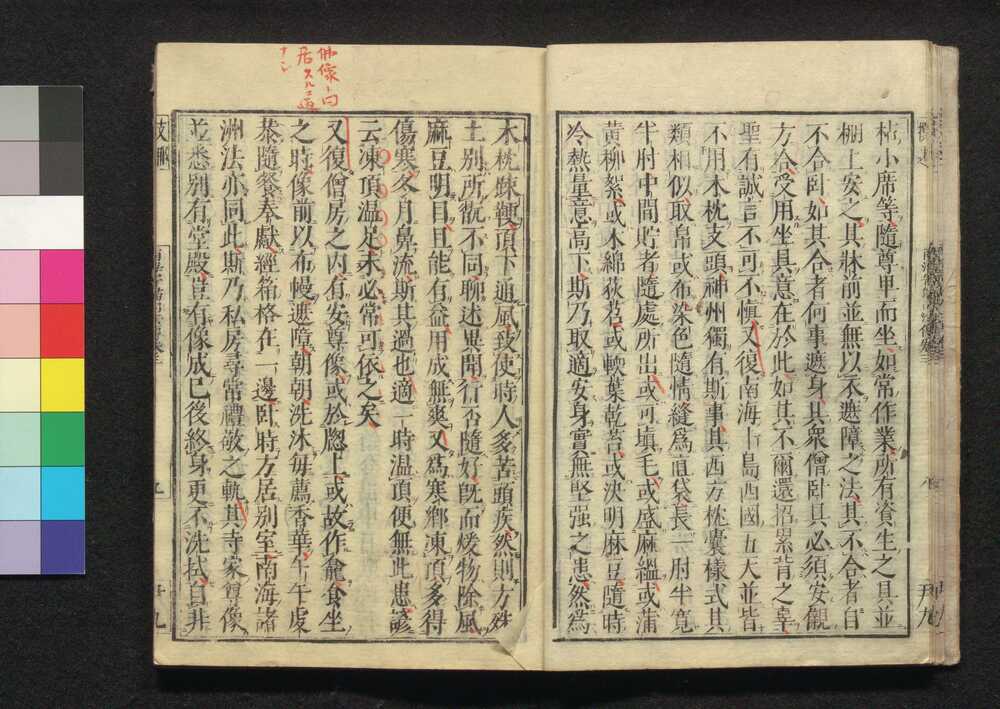 枯小席等隨尊卑而坐如常作業所有資生之具並
棚上安之具牀前並無以衣遮障之法其不合者自
不合臥如其合者何事遮身其衆僧臥具必須安儭
方合受用坐具意在於此如其不爾還招累背之辜
聖有誠言不可不愼又復南海十島西國五天並皆
不用木枕支頭神州獨有斯事其西方枕囊樣式其
類相似取帛或布染色隨情縫爲直袋長一肘半寬
半肘中間貯者隨處所出或可填毛或盛麻縕或蒲
黃柳絮或木綿荻苕或軟葉乾苔或決明麻豆隨時
冷熱量意高下斯乃取適安身實無堅强之患然爲
木枕踈鞕項下通風致使時人多苦頭疾然則方殊
土別所翫不同聊述異聞行否隨好旣而煖物除風
麻豆明目且能有益用成無爽又爲寒鄉凍頂多得
傷寒冬月鼻流斯其過也適時温頂便無此患諺
云凍頂温足未必常可依之矣
又復僧房之内有安尊像或於窓上或故作龕食坐
之時像前以布幔遮障朝朝洗沐每薦香華午午虔
恭隨餐奉獻經箱格在一邊臥時方居別室南海諸
洲法亦同此斯乃私房尋常禮敬之軌其寺家尊像
並悉別有堂殿豈有像成已後終身更不洗拭自非